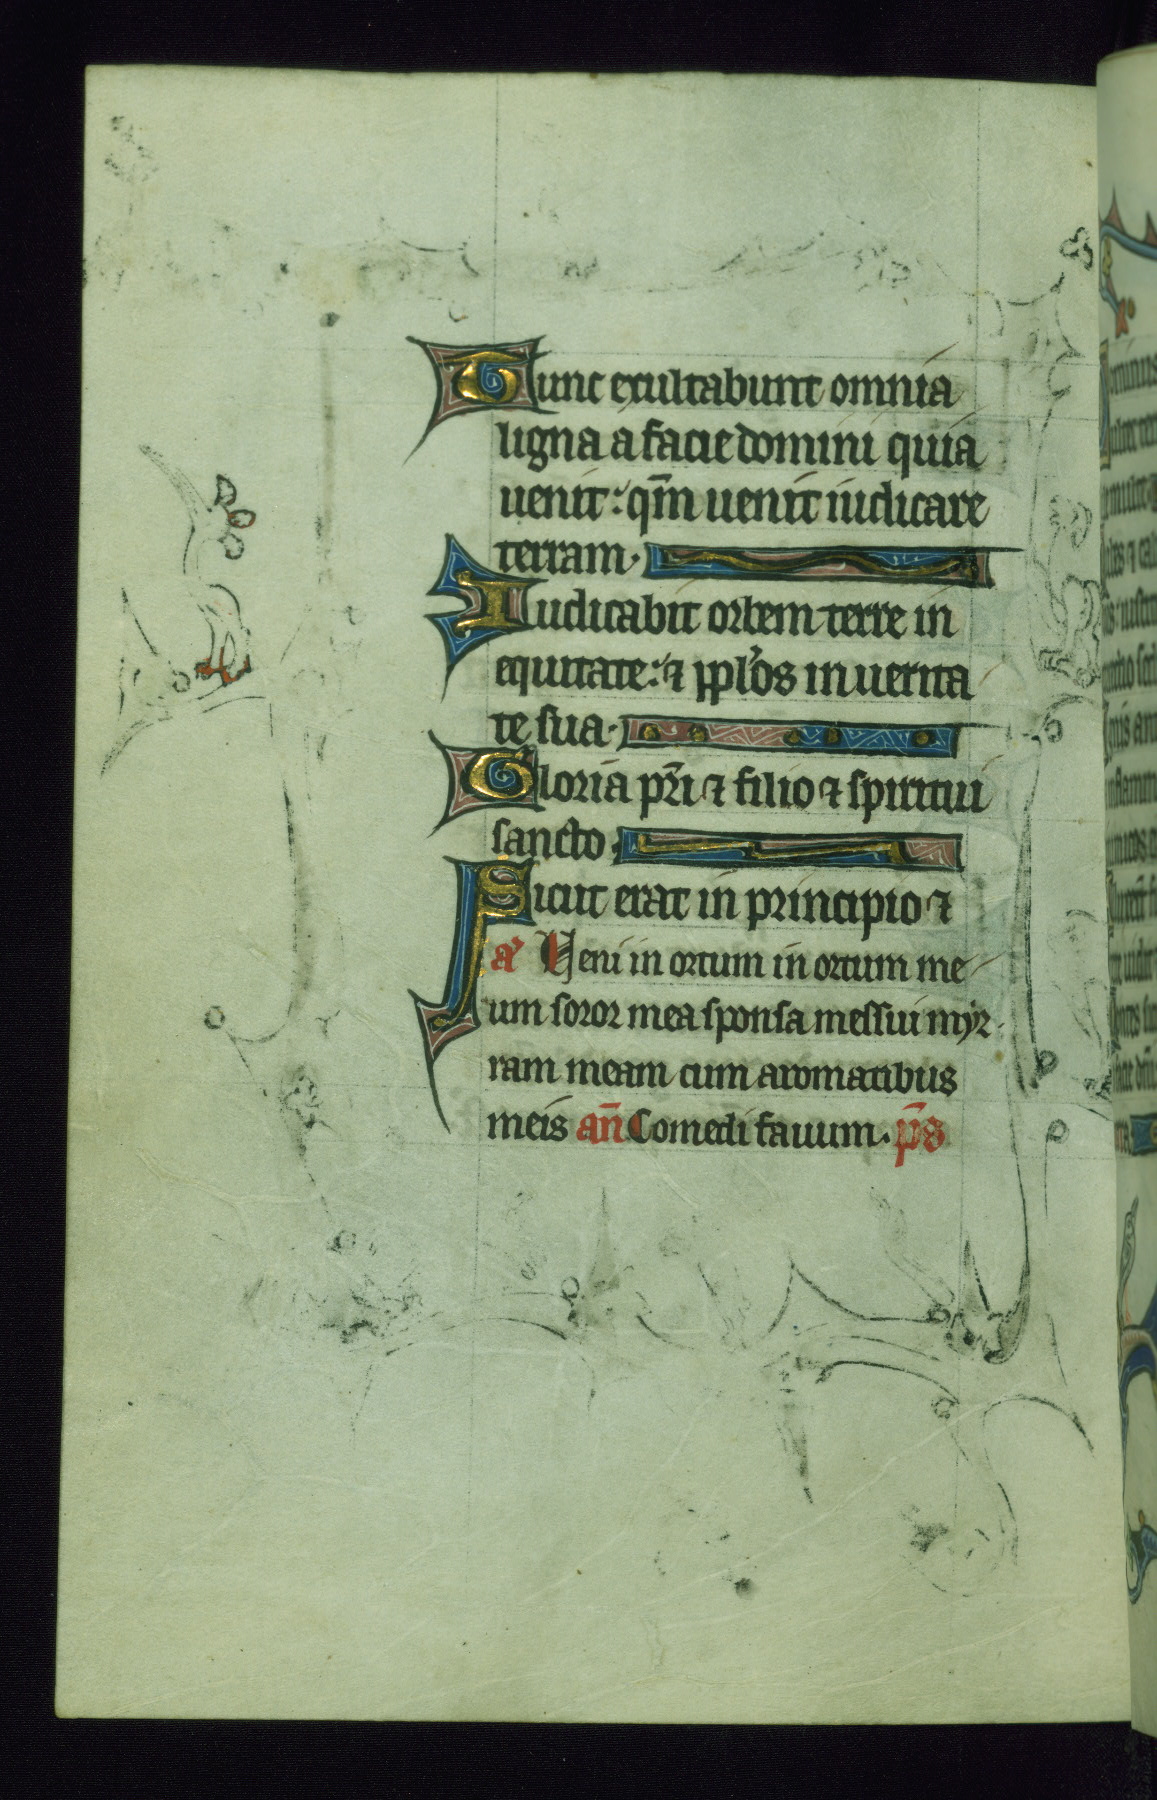 Tunc exultabunt omnia
ligna a facie domini quia
uenit : qm̄ uenit iudicare
terram.
Iudicabit orbem terre in
equitate : ⁊ pplos in uerita
te sua.
Gloria pr̄i ⁊ filio ⁊ spiritui
sancto.
Sicut erat in principio ⁊
a᷒ Veni in ortum in ortum me
um soror mea sponsa messui myr
ram meam cum aromatibus
meis an̄ Comedi fauum. p̄s